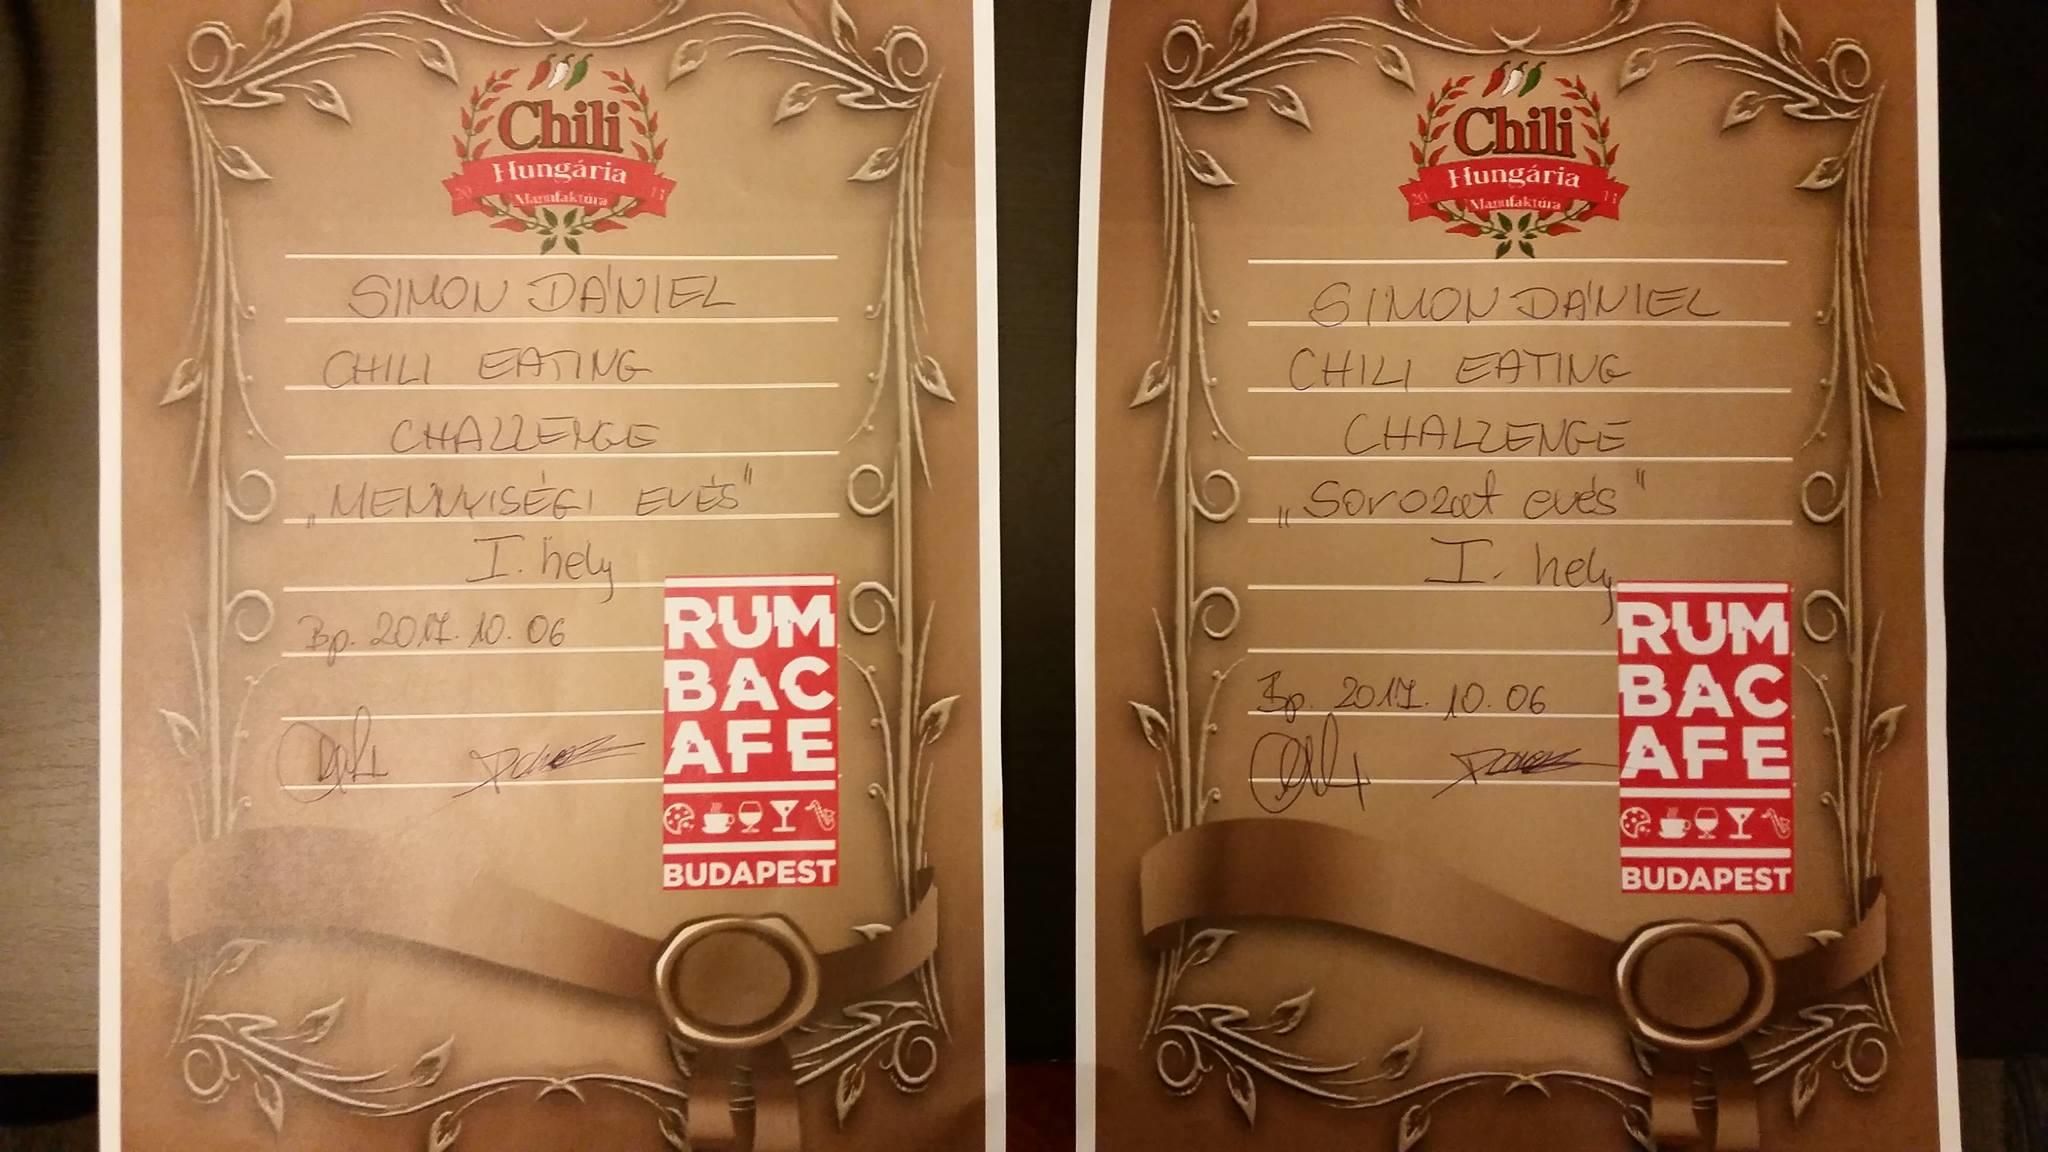 Chili
Hungária
20 Manufaktúra 11
SIMON DÁNIEL
CHILI EATING
CHALLENGE
„MENNYISÉGI EVÉS”
I. hely
Bp. 2017. 10. 06
RUM
BAC
AFE
BUDAPEST
Chili
Hungária
20 Manufaktúra 11
SIMON DÁNIEL
CHILI EATING
CHALLENGE
„Sorozat evés”
I. hely
Bp. 2017. 10. 06
RUM
BAC
AFE
BUDAPEST